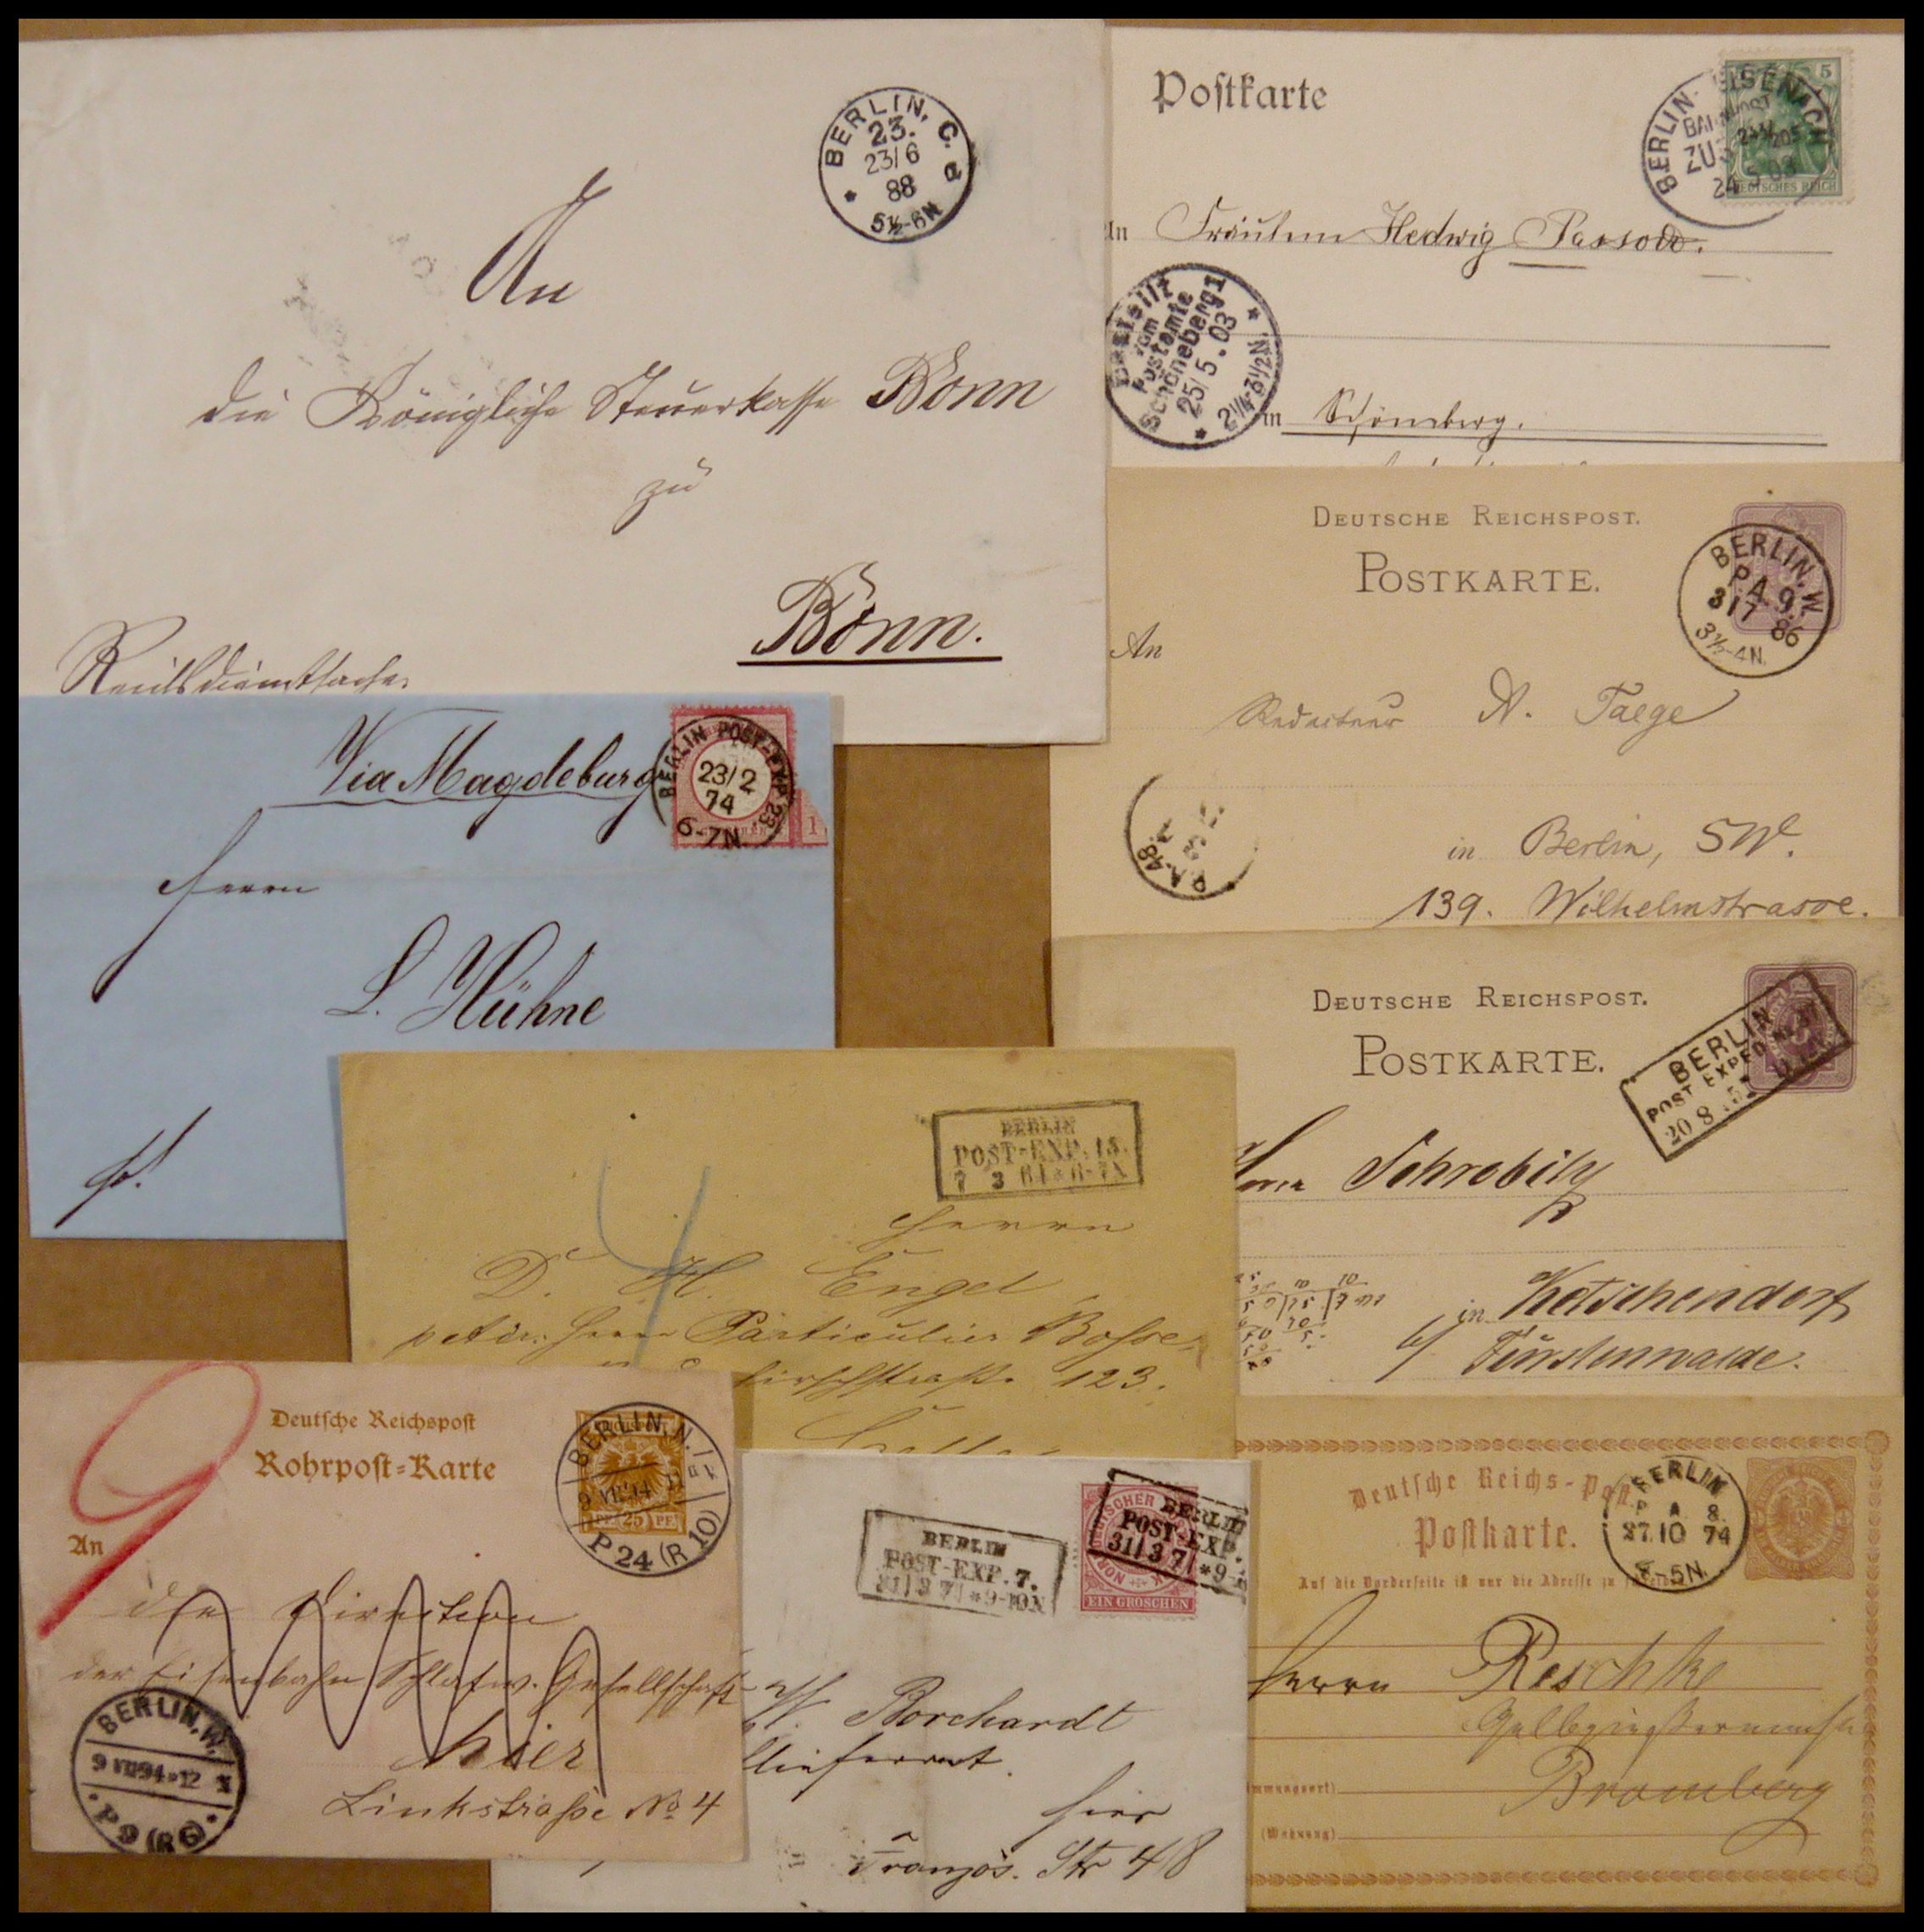 BERLIN, C.
23.
23/6
88
5½-6N
d
An
die Königliche Steuerkasse Bonn
zu
Bonn.
Reichsdienstsache
Postkarte
BERLIN - EISENACH
BAHNPOST
ZUG
24 5 03
5
DEUTSCHES REICH
An Fräulein Hedwig
Bestellt
vom
Postamte
Schöneberg 1
25/5.03
2¼-3½N
in Schöneberg.
DEUTSCHE REICHSPOST.
POSTKARTE.
BERLIN, W.
P.A. 9.
3 17 86
3½-4N.
An
Redacteur A. Taege
P.A. 48
in Berlin, SW.
139. Wilhelmstrasse.
Via Magdeburg
BERLIN POST-EXP. 23.
23/2
74
6-7N.
1
Herrn
L. Hühne
fr!
DEUTSCHE REICHSPOST.
POSTKARTE.
BERLIN
POST EXPED.
20 8
Herrn
in Ketschendorf
b/ Fürstenwalde.
BERLIN
POST-EXP. 15.
7 3 6-7N
4
Herrn
D. H. Engel
Herrn Particulier
123.
9
Deutsche Reichspost
Rohrpost-Karte
BERLIN, N.
25 PF
P 24 (R 10)
An
die Direction
der Eisenbahn Schlafw. Gesellschaft
hier
Linkstraße No 4
BERLIN, W.
9 VII 94 * 12
P 9 (R 6)
BERLIN
POST-EXP. 7.
31 3 71 * 9-10N
NORDDEUTSCHER
EIN GROSCHEN
BERLIN
POST-EXP.
31 3 71 * 9-
Borchardt
hier
Französ. Str 48
Deutsche Reichs-Post.
Postkarte.
BERLIN
P. A. 8.
27.10 74
4-5N.
Auf die Vorderseite ist nur die Adresse zu
Herrn Reschke
Bromberg
(Wohnung)